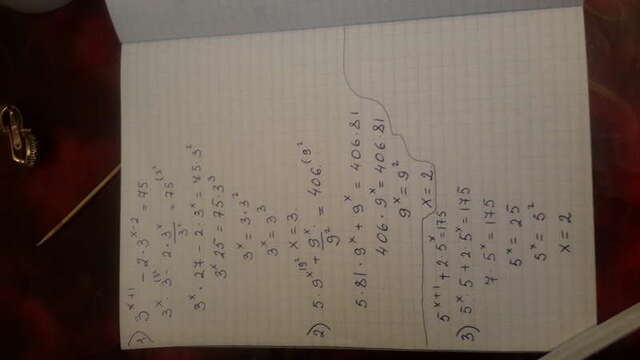 1) 3^(x+1) - 2·3^(x-2) = 75
3^x ·3 - 2·3^x/3² = 75 (3²
3^x · 27 - 2·3^x = 75·3²
3^x 25 = 75 3²
3^x = 3·3²
3^x = 3³
x = 3.
2) 5·9^x + 9^x/9² = 406 (9²
5·81·9^x + 9^x = 406·81
406·9^x = 406·81
9^x = 9²
x = 2
5^(x+1) + 2·5^x = 175
3) 5^x·5 + 2·5^x = 175
7·5^x = 175
5^x = 25
5^x = 5²
x = 2